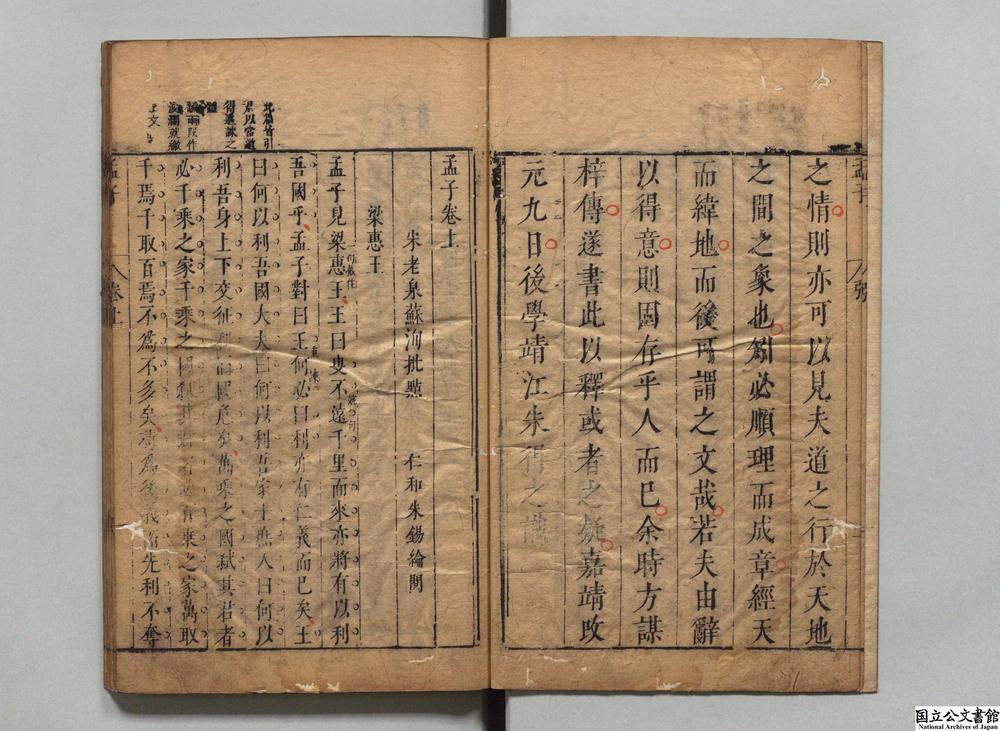 之情則亦可以見夫道之行於天地
之間之象也剏必順理而成章經天
而緯地而後可謂之文哉若夫由辭
以得意則固存乎人而已余時方謀
梓傳遂書此以釋或者之疑嘉靖改
元九日後學靖江朱得之識
孟子卷上
宋老泉蘇洵批點 仁和朱錫綸閱
梁惠王
孟子見梁惠王王曰叟不遠千里而來亦將有以利
吾國乎孟子對曰王何必曰利亦有仁義而已矣王
曰何以利吾國大夫曰何以利吾家士庶人曰何以
利吾身上下交征利而國危矣萬乘之國弒其君者
必千乘之家千乘之國弒其君者必百乘之家萬取
千焉千取百焉不為不多矣苟為後義而先利不奪
孟子
卷上
国立公文書館
National Archives of Japan